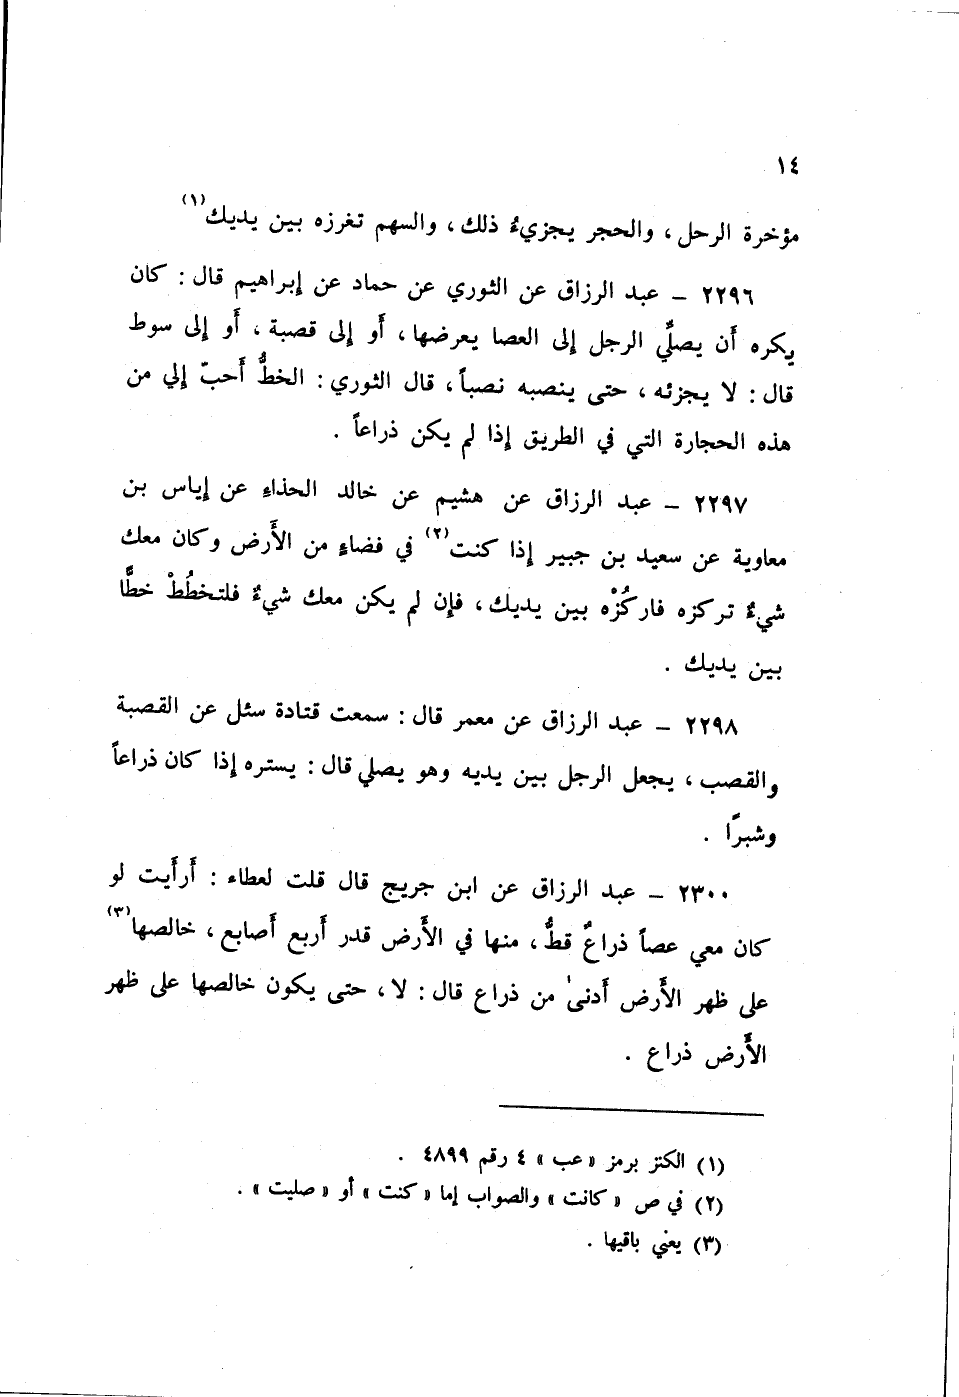 ١٤
مؤخرة الرحل ، والحجر يجزيءُ ذلك ، والسهم تغرزه بين يديك(١)
٢٢٩٦ – عبد الرزاق عن الثوري عن حماد عن إبراهيم قال : كان
يكره أَن يصلِّي الرجل إلى العصا يعرضها ، أَو إلى قصبة ، أَو إلى سوط
قال : لا يجزئه ، حتى ينصبه نصباً ، قال الثوري : الخطُّ أَحبّ إلي من
هذه الحجارة التي في الطريق إذا لم يكن ذراعاً .
٢٢٩٧ – عبد الرزاق عن هشيم عن خالد الحذاءِ عن إياس بن
معاوية عن سعيد بن جبير إذا كنت(٢) في فضاءٍ من الأَرض وكان معك
شيءٌ تركزه فاركُزْه بين يديك ، فإن لم يكن معك شيءٌ فلتخطُطْ خطًّا
بين يديك .
٢٢٩٨ – عبد الرزاق عن معمر قال : سمعت قتادة سئل عن القصبة
والقصب ، يجعل الرجل بين يديه وهو يصلي قال : يستره إذا كان ذراعاً
وشبرًا .
٢٣٠٠ – عبد الرزاق عن ابن جريج قال قلت لعطاء : أَرأَيت لو
كان معي عصاً ذراعٌ قطُّ ، منها في الأَرض قدر أَربع أَصابع ، خالصها(٣)
على ظهر الأَرض أَدنىٰ من ذراع قال : لا ، حتى يكون خالصها على ظهر
الأَرض ذراع .
(١) الكنز برمز «عب» ٤ رقم ٤٨٩٩ .
(٢) في ص « كانت » والصواب إما « كنت » أو « صليت » .
(٣) يعني باقيها .